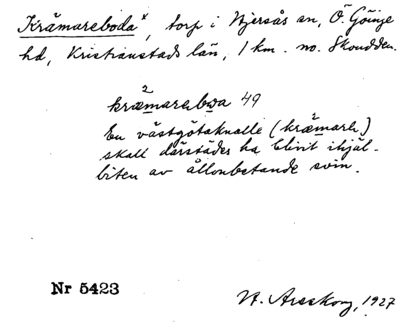 Kråmareboda*, torp i Hjersås sn, Ö. Göinge
hd, Kristianstads län, 1 km. no. Skoudden.
2
49
En västgötaknalle (
skall därstädes ha blivit ihjäl-
biten av ållonbetande svin.
Nr 5423
1927